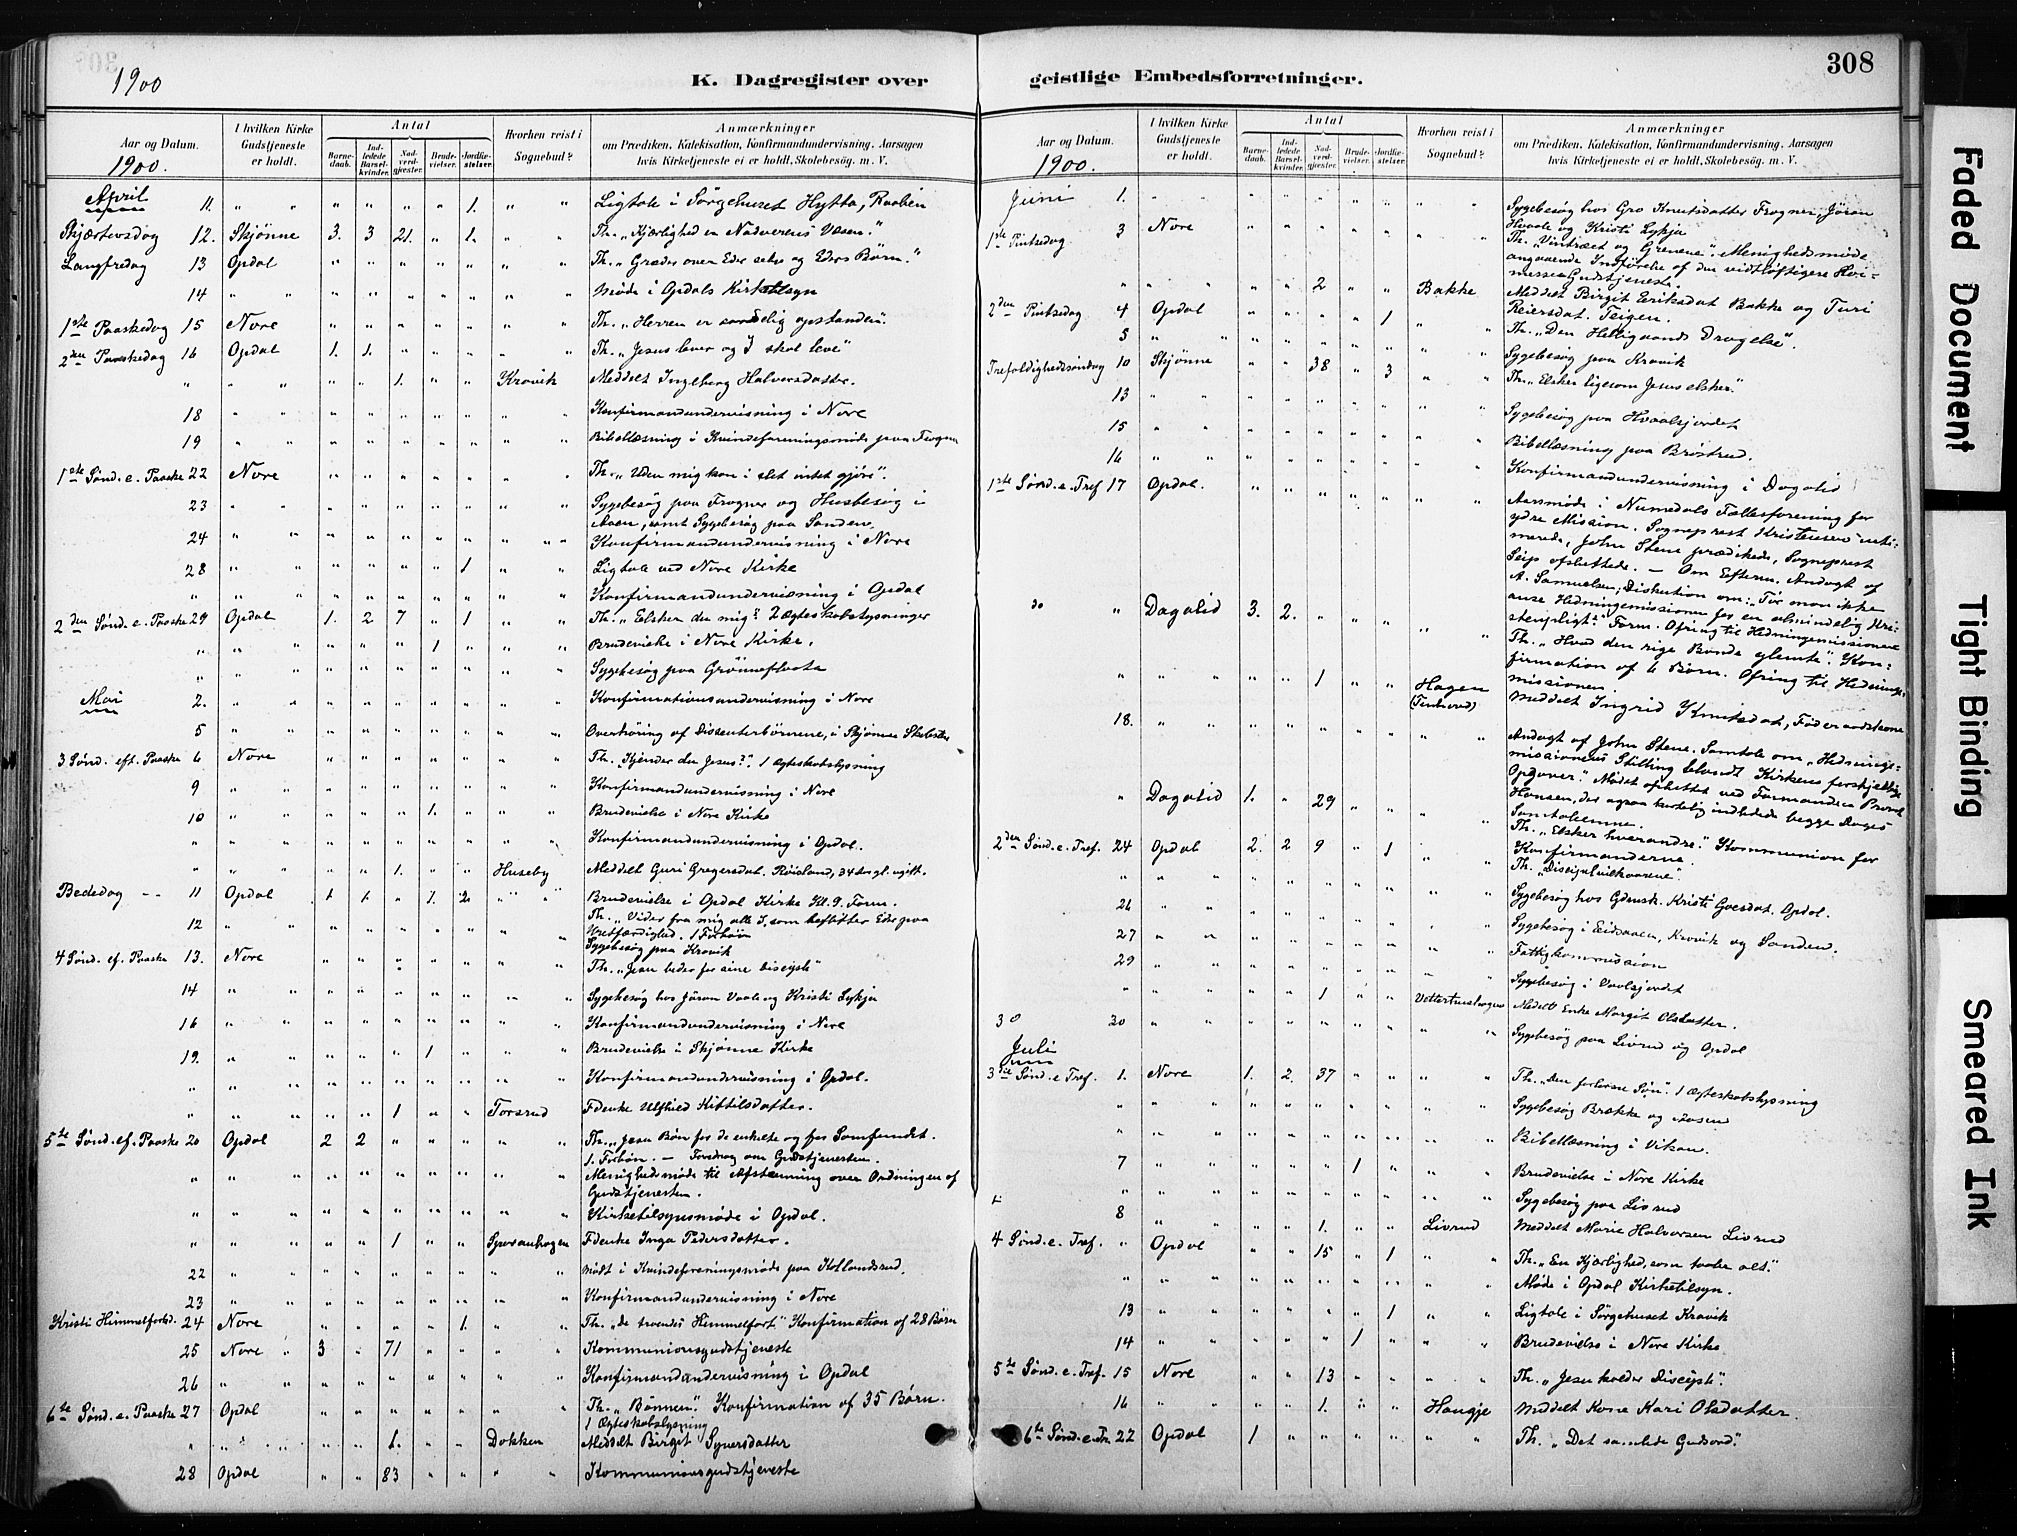 308
1900
K. Dagregister over
Aar og Datum.
1900.
I hvilken Kirke Gudstjeneste er holdt.
Antal
Barne-daab.
Ind-ledede Barsel-kvinder.
Nad-verd-gjæster.
Brude-vielser.
Jordfæ-stelser.
Hvorhen reist i Sognebud?
Anmærkninger
om Prædiken, Katekisation, Konfirmandundervisning, Aarsagen
hvis Kirketjeneste ei er holdt, Skolebesøg. m. V.
April 11. " " " " " " 1. " " Ligtale i Sørgehuset Hytta, Raaben
Skjærtorsdag 12. Skjønne 3. 3 21. " 1. " " Th. "Kjærlighed en Nadverens Væsen."
Langfredag 13 Opdal " " " " " " " Th. "Græder over Eder selv og Eders Børn."
14 " " " " " " " " " Møde i Opdals Kirketilsyn
1ste Paaskedag 15 Nore " " " " " " " Th. "Herren er sandelig opstanden".
2den Paaskedag 16 Opdal 1. 1. " " " " " Th. "Jesus lever og I skal leve"
" " " " " 1. " " Kravik Meddelt Ingeborg Halvorsdatter.
18 " " " " " " " " " Konfirmandundervisning i Nore
19 " " " " " " " " " Bibellæsning i Kvindeforeningsmøde paa Frogner
1ste Sønd. e. Paaske 22 Nore " " " " " " " Th. "Uden mig kan i slet intet gjøre".
23 " " " " " " " " " Sygebesøg paa Frogner og Husbesøg i
Aasen, samt Sygebesøg paa Sanden
24 " " " " " " " " " Konfirmandundervisning i Nore
28 " " " " " " 1 " " Ligtale ved Nore Kirke
" " " " " " " " " " Konfirmandundervisning i Opdal
2den Sønd. e. Paaske 29 Opdal 1. 2 7 " 1 " " Th. "Elsker du mig? 2 Ægteskabslysninger
" " " " " " 1 " " " Brudevielse i Nore Kirke.
" " " " " " " " " " Sygebesøg paa Grønneflaata
Mai 2. " " " " " " " " " Konfirmationsundervisning i Nore
5 " " " " " " " " " Overhøring af Dissenterbørnene, i Skjønne
3 Sønd. eft. Paaske 6 Nore " " " " " " " Th. "Kjender du Jesus?". 1 Ægteskabslysning
9 " " " " " " " " " Konfirmandundervisning i Nore
10 " " " " " 1. " " " Brudevielse i Nore Kirke
" " " " " " " " " " Konfirmandundervisning i Opdal.
" " " " " 1. " " Huseby Meddelt Guri Gregersdat. Røisland, 34 Aar gl. ugift.
Bededag -- 11 Opdal 1 1. " 1. 2 " " Brudevielse i Opdal Kirke Kl. 9. Form.
12 " " " " " " " " " Th. "Viger fra mig alle I, som beflitter Eder paa
Uretfærdighed. 1 Forbøn
Sygebesøg paa Kravik
4 Sønd. ef. Paaske 13. Nore " " " " " " " Th. "Jesu beder for sine Disciple"
14 " " " " " " " " " Sygebesøg hos Jøran Vaale og Kristi Lykja
16 " " " " " " " " " Konfirmandundervisning i Nore
19. " " " " " 1 " " " Brudevielse i Skjønne Kirke
" " " " " " " " " " Konfirmandundervisning i Opdal.
" " " " " 1 " " Torsrud Fdenke Ulfhild Kittilsdatter.
5te Sønd. ef. Paaske 20 Opdal 2 2 " " " " " Th. "Jesu Bøn for de enkelte og for Samfundet.
1. Forbøn. — Foredrag om Gudstjenesten.
" " " " " " " " " " Menighedsmøde til Afstemning over Ordningen af
Gudstjenesten.
" " " " " " " " " " Kirketilsynsmøde i Opdal.
" " " " " 1 " " Fdenke Inga Pedersdatter.
22 " " " " " " " " " Mødt i Kvindeforeningsmøde paa Kollandsrud.
23 " " " " " " " " " Konfirmandundervisning i Nore
Kristi Himmelfartsd. 24 Nore " " " " 1. " " Th. "de troendes Himmelfart" Konfirmation af 28 Børn
25 Nore " 3 " 71 " " " " Kommunionsgudstjeneste
26 " " " " " " " " " Konfirmandundervisning i Opdal
6te Sønd. e. Paaske 27 Opdal " " " " " " " Th. "Bønnen". Konfirmation af 35 Børn.
1 Ægteskabslysning
" " " " " 1. " " Dokken Meddelt Birget Syversdatter
28 Opdal " " 83 " " " " Kommunionsgudstjeneste
geistlige Embedsforretninger.
308
Aar og Datum.
1900.
I hvilken Kirke Gudstjeneste er holdt.
Antal
Barne-daab.
Ind-ledede Barsel-kvinder.
Nad-verd-gjæster.
Brude-vielser.
Jordfæ-stelser.
Hvorhen reist i Sognebud?
Anmærkninger
om Prædiken, Katekisation, Konfirmandundervisning, Aarsagen
hvis Kirketjeneste ei er holdt, Skolebesøg. m. V.
Juni 1. " " " " " " " " " Sygebesøg hos Gro Knutsdatter Frogner, Jøran
Hvaale og Kristi Lykja
1ste Pintsedag 3 Nore " " " " " " " Th. "Vintræet og Grenene". Menighedsmøde
angaaende Indførelse af den vidtløftigere Høi-
messe-Gudstjeneste.
" " " " " 2 " " Bakke Meddelt Birgit Eriksdat Bakke og Turi
Reiersdat. Teigen.
2den Pintsedag 4 Opdal " " " " 1 " " Th. "Den Helligaands Dragelse".
5 " " " " " " " " " Sygebesøg paa Kravik
Trefoldighedssøndag 10 Skjønne " " 38 " 3 " " Th. "Elsker ligesom Jesus elsker."
13 " " " " " " " " " Sygebesøg paa Hvaalsjordet
15 " " " " " " " " " Bibellæsning paa Brøstrud.
16 " " " " " " " " " Konfirmandundervisning i Dagalid
1ste Sønd. e. Tref 17 Opdal. " " " " " " " Aarsmøde i Numedals Fællesforening for
ydre Mission. Sogneprest Kristensen
John Stene prædikede, Sogneprest
Seip afsluttede. — Om Efterm. Andagt af
A. Samuelsen; Diskution om: "Tør man ikke
anse Hedningemissionen for en almindelig Kri-
stenpligt?" Form. Ofring til Hedningemissionen
do " Dagalid 3. 2. " " " " " Th. "Hvad den rige Bonde glemte". Kon-
firmation af 6 Børn. Ofring til Hednings-
missionen.
" " " " " 1 " " Hagen Meddelt Ingrid Knutsdat,
18. " " " " " " " " " Andagt af John Stene. Samtale om "Hednings-
missionens Stilling blandt Kirkens forskjellige
Opgaver". Mødet afsluttet ved Formanden
Hansen, der ogsaa indledede begge Dages
Samtaleemne.
" Dagalid 1. " 29 " " " " Th. "Elsker hverandre." Kommunion for
Konfirmanderne.
2den Sønd. e. Tref. 24 Opdal 2. 2 9 " 1 " " Th. "Discipelvilkaarene".
" " " " " " " " " " Sygebesøg hos Gdmsk. Kristi Opdal.
26 " " " " " " " " " Sygebesøg i Eidsaaen, Kravik og Sanden.
27 " " " " " " " " " Fattigkommission
29 " " " " " " " " " Sygebesøg i Vaalsjordet
" " " " " 1 " " Meddelt Enke Margit Olsdatter.
30 " " " " " " " " " Sygebesøg paa Livrud og Opdal
Juli
3die Sønd. e Tref. 1. Nore 1. 2. 37 " " " " Th. "Den forlorne Søn". 1 Ægteskabslysning
" " " " " " " " " " Sygebesøg Brække og Aasen
" " " " " " " " " " Bibellæsning i Vikan.
7 " " " " " 1 " " " Brudevielse i Nore Kirke
" " " " " " " " " " Sygebesøg paa Livrud
8 " " " " 1. " " Livrud Meddelt Marie Halvorsen Livrud
4 Sønd. e. Tref. " Opdal " " 15 " 1 " " Th. "En Kjærlighed, som taaler alt."
" " " " " " " " " " Møde i Opdal Kirketilsyn.
13 " " " " " " 1 " " Ligtale i Sørgehuset Kravik
14 " " " " " 1 " " " Brudevielse i Nore Kirke
5te Sønd. e. Tref. 15 Nore " " 13 " " " " Th. "Jesu kalder Disciple".
16 " " " " 1. " " Haugje Meddelt Kone Kari Olsdatter.
6te Sønd. e. Tr. 22 Opdal 1 " " " " " " Th. "Det samlede Gudsord".
Faded Document
Tight Binding
Smeared Ink